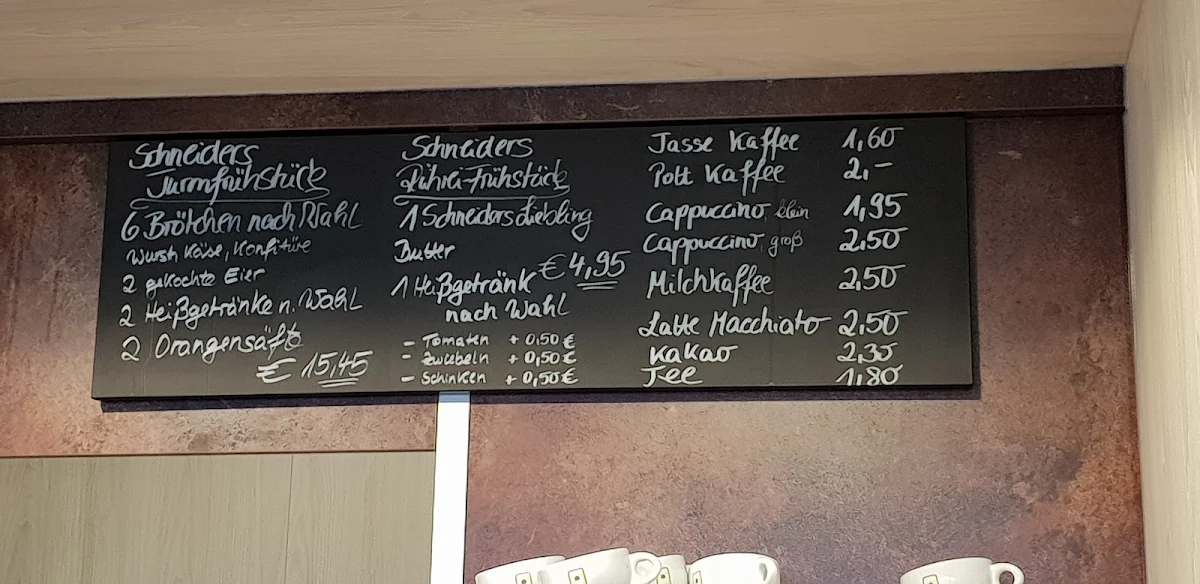 Schneiders
Turmfrühstück
6 Brötchen nach Wahl
Wurst, Käse, Konfitüre
2 gekochte Eier
2 Heißgetränke n. Wahl
2 Orangensäfte
€ 15,45
Schneiders
Rührei-Frühstück
1 Schneiders Liebling
Butter
€ 4,95
1 Heißgetränk
nach Wahl
- Tomaten + 0,50 €
- Zwiebeln + 0,50 €
- Schinken + 0,50 €
Tasse Kaffee 1,60
Pott Kaffee 2,-
Cappuccino klein 1,95
Cappuccino groß 2,50
Milchkaffee 2,50
Latte Macchiato 2,50
Kakao 2,35
Tee 1,80